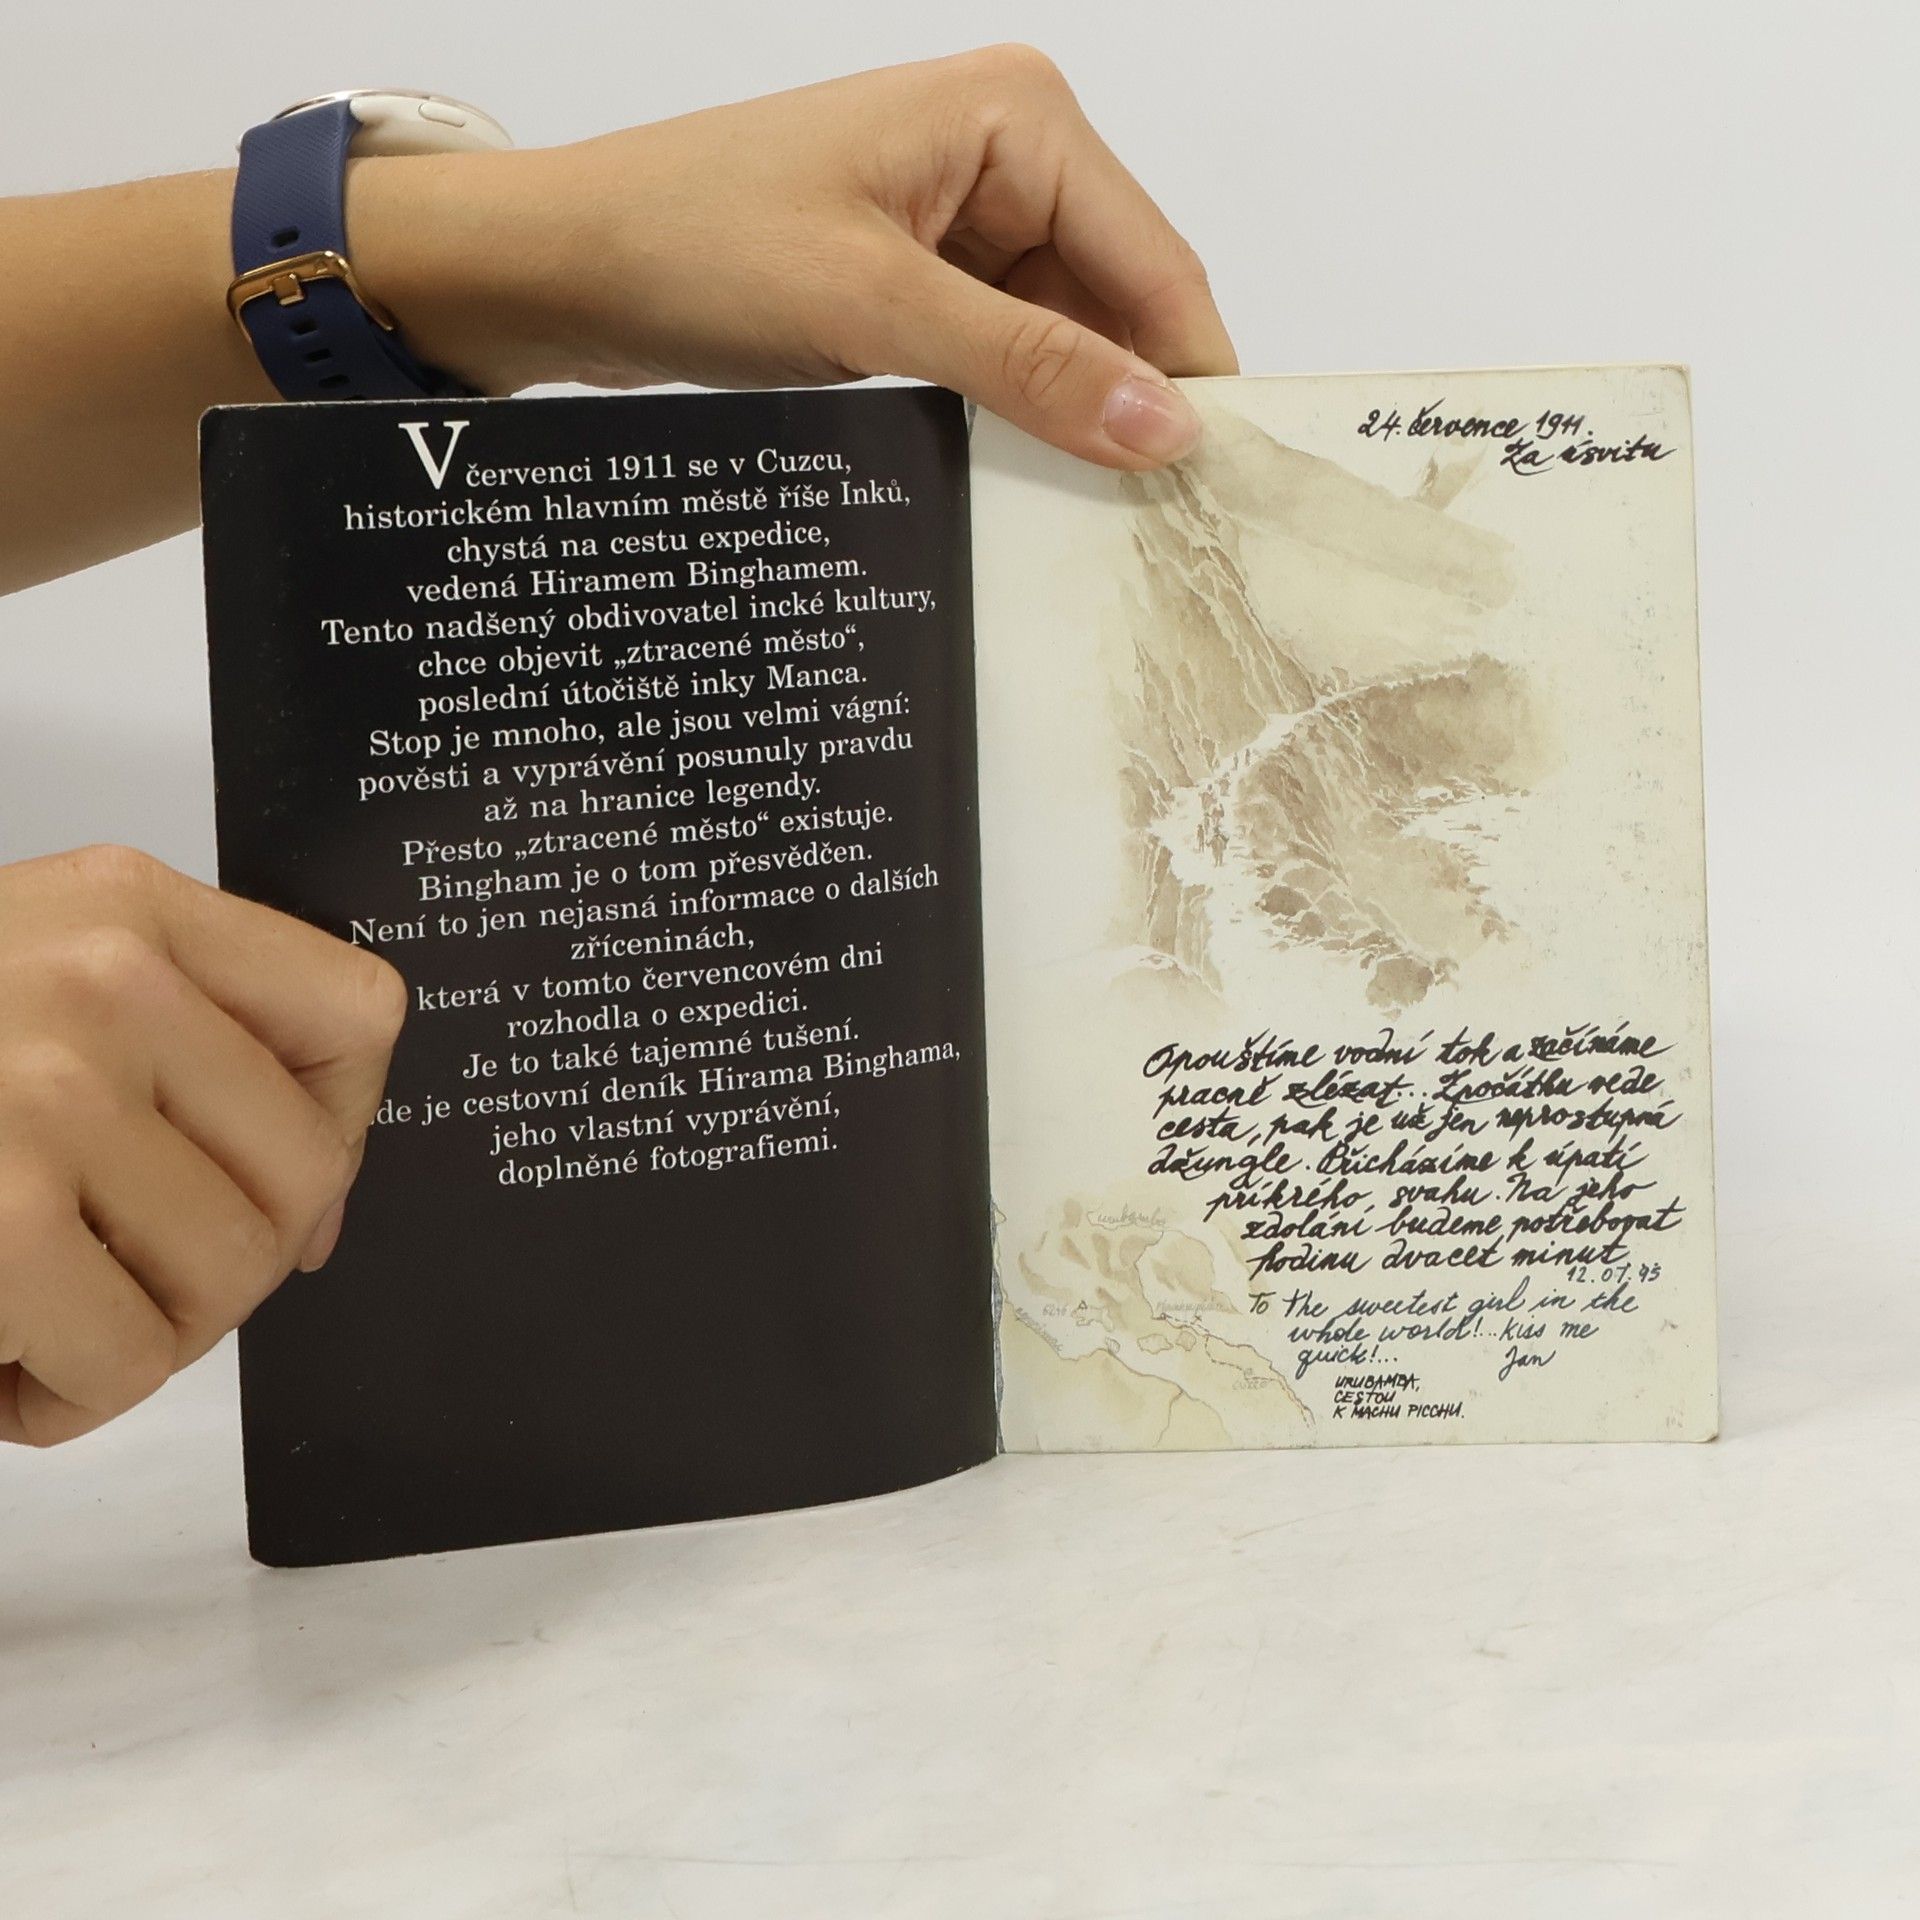 V červenci 1911 se v Cuzcu,
historickém hlavním městě říše Inků,
chystá na cestu expedice,
vedená Hiramem Binghamem.
Tento nadšený obdivovatel incké kultury,
chce objevit „ztracené město“,
poslední útočiště inky Manca.
Stop je mnoho, ale jsou velmi vágní:
pověsti a vyprávění posunuly pravdu
až na hranice legendy.
Přesto „ztracené město“ existuje.
Bingham je o tom přesvědčen.
Není to jen nejasná informace o dalších
zříceninách,
která v tomto červencovém dni
rozhodla o expedici.
Je to také tajemné tušení.
de je cestovní deník Hirama Binghama,
jeho vlastní vyprávění,
doplněné fotografiemi.
24. července 1911.
Za úsvitu
Opouštíme vodní tok a začínáme
pracně zlézat... Zpočátku vede
cesta, pak je už jen neprostupná
džungle. Přicházíme k úpatí
příkrého svahu. Na jeho
zdolání budeme potřebovat
hodinu dvacet minut
12.07.95
To the sweetest girl in the
whole world!...kiss me
quick!... Jan
URUBAMBA,
CESTOU
K MACHU PICCHU.
Urubamba
6246
Cuzco